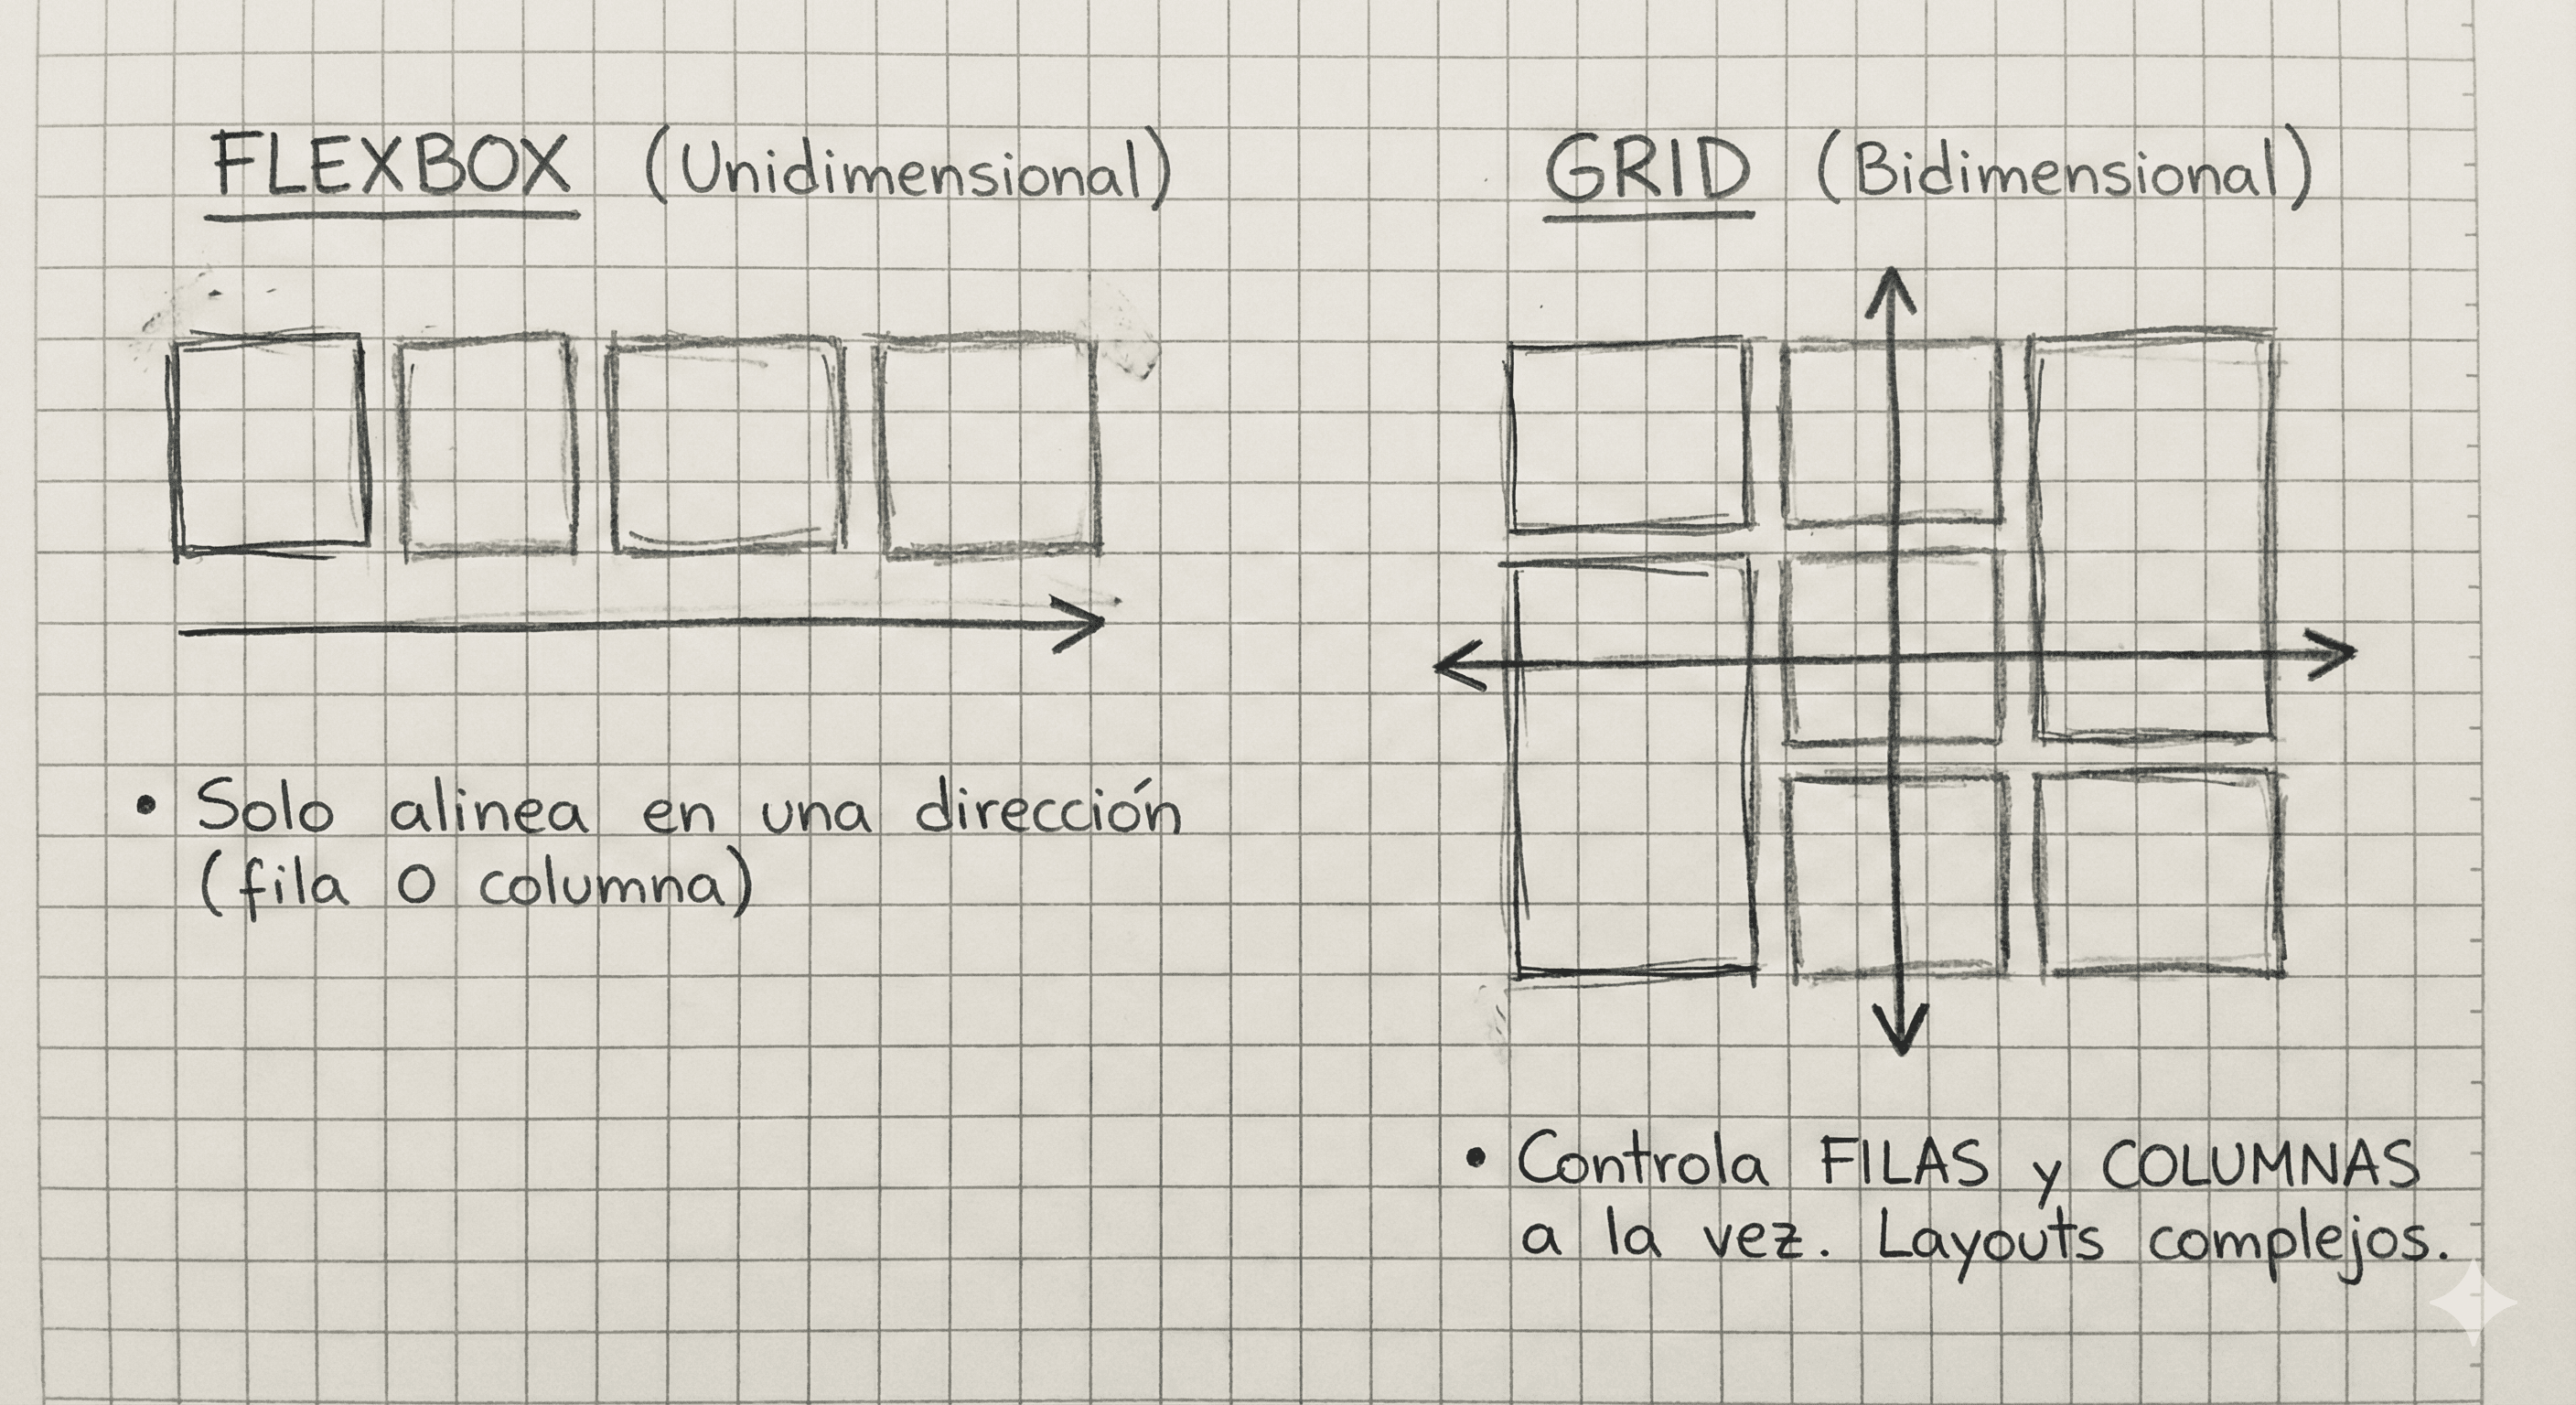 FLEXBOX (Unidimensional)
• Solo alinea en una dirección
(fila O columna)
GRID (Bidimensional)
• Controla FILAS y COLUMNAS
a la vez. Layouts complejos.